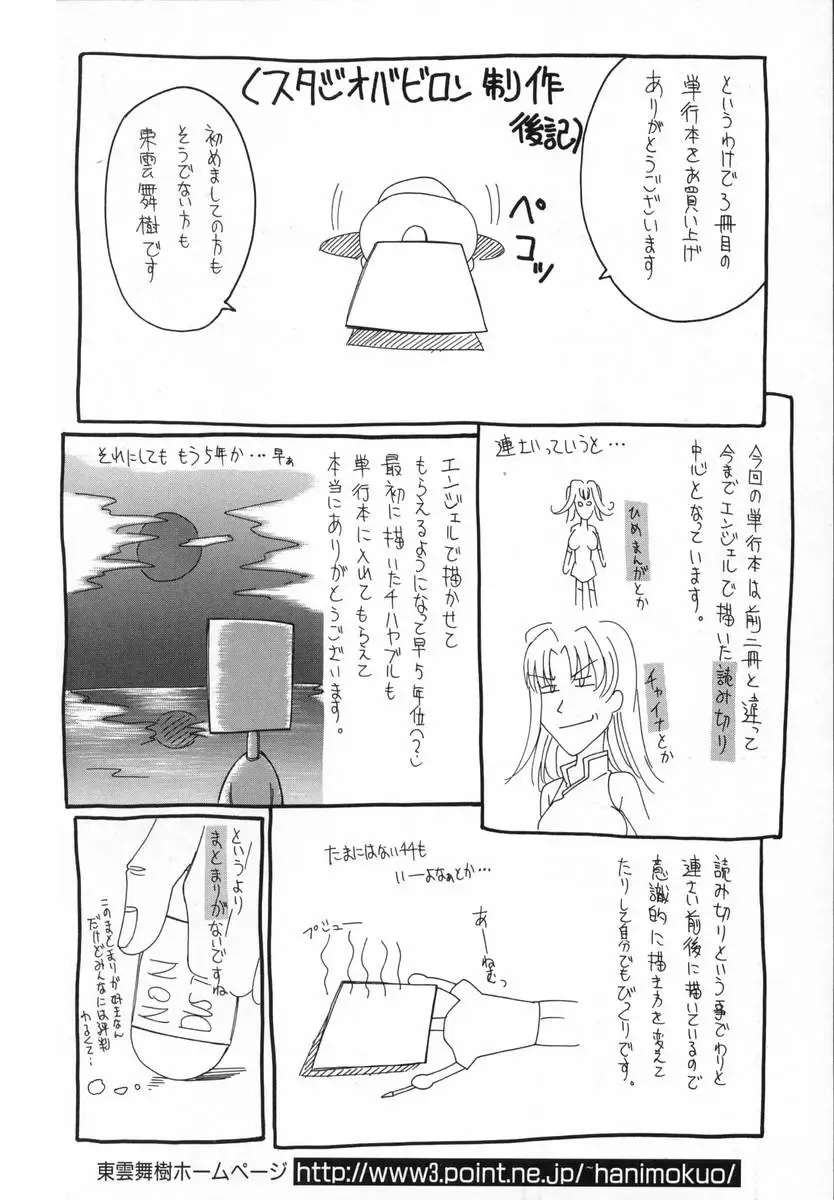 (スタジオバビロン制作
後記)
というわけで3冊目の
単行本をお買い上げ
ありがとうございます
ペコッ
初めましての方も
そうでない方も
東雲舞樹です
今回の単行本は前二冊と違って
今までエンジェルで描いた読み切り
中心となっています。
連さいっていうと…
ひめまんがとか
チャイナとか
エンジェルで描かせて
もらえるようになって早5年位(?)
最初に描いたチハヤブルも
単行本に入れてもらえて
本当にありがとうございます。
それにしても もう5年か…早ぁ
読み切りという事でわりと
連さい前後に描いているので
意識的に描き方を変えて
たりして自分でもびっくりです。
たまにはない44も
いーよなぁとか…
あーねむっ
プシュー
というより
まとまりがないですね
このまとまりが好きなん
だけどみんなには評判
わるくて…
NON
DIST
東雲舞樹ホームページ http://www3.point.ne.jp/~hanimokuo/